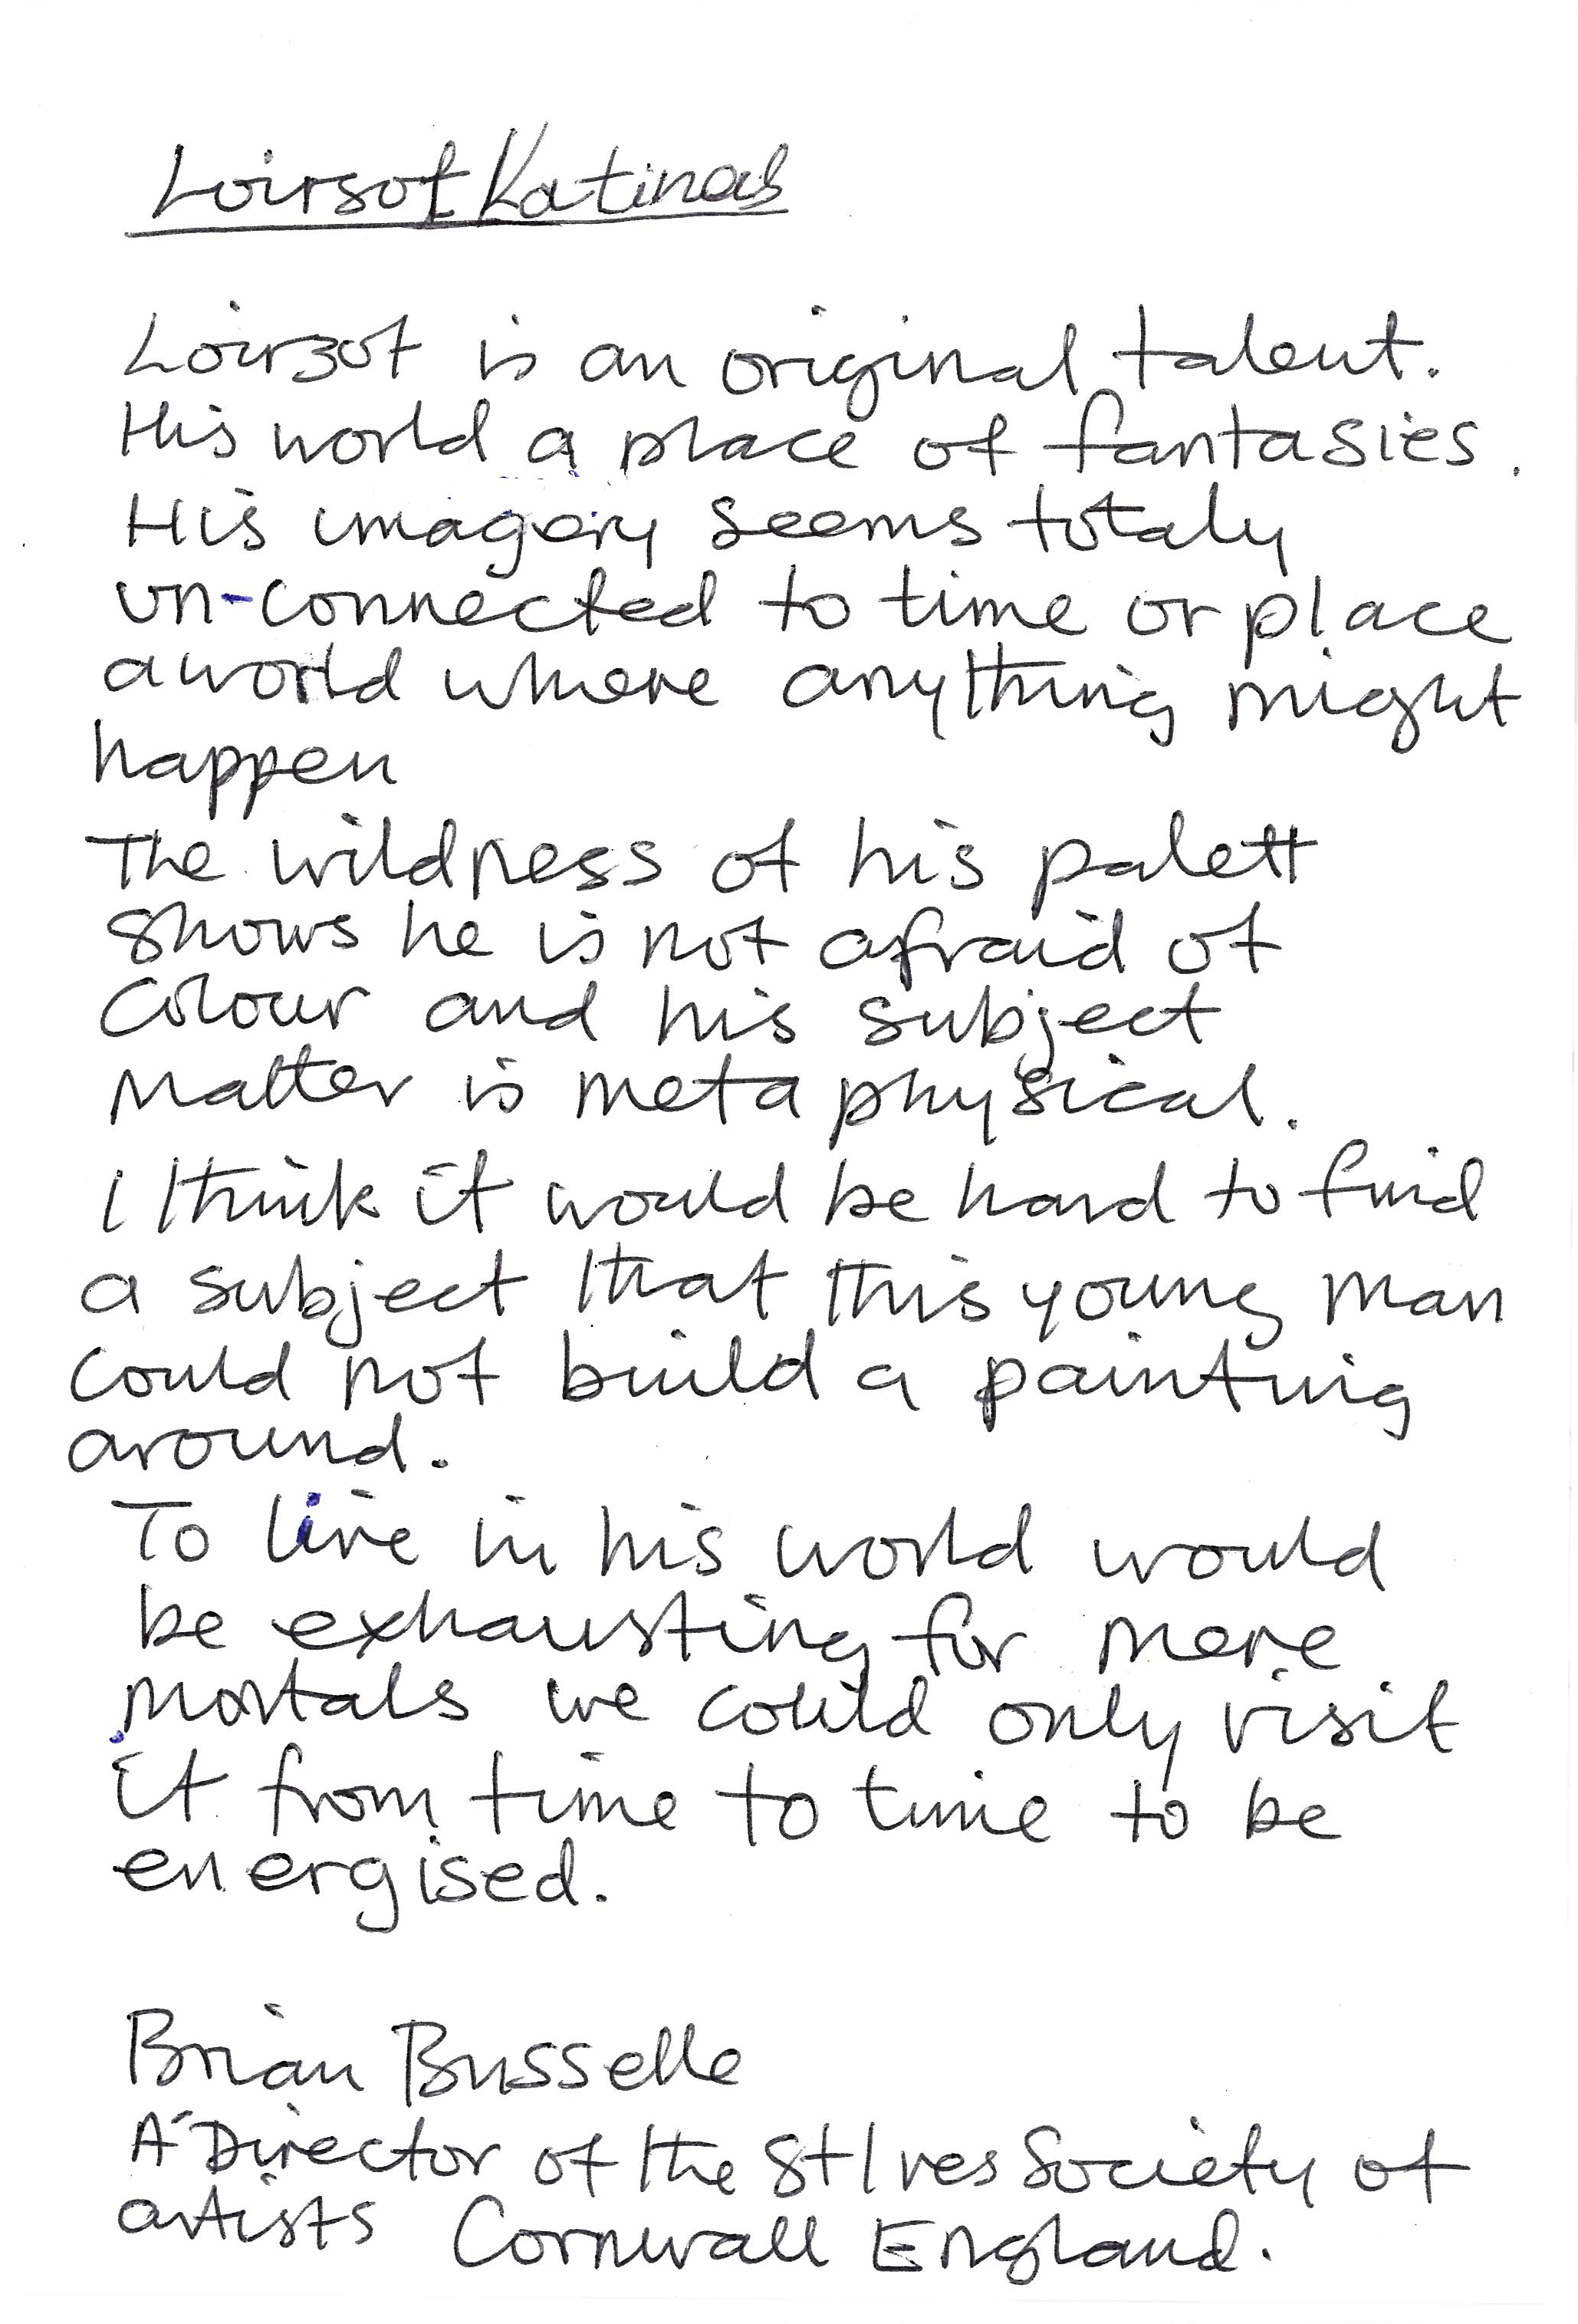 Loirsot Katinas
Loirsot is an original talent.
His world a place of fantasies.
His imagery seems totaly
un-connected to time or place
a world where anything might
happen
The wildness of his palett
shows he is not afraid of
colour and his subject
matter is metaphysical.
I think it would be hard to find
a subject that this young man
could not build a painting
around.
To live in his world would
be exhausting for mere
mortals we could only visit
it from time to time to be
energised.
Brian Busselle
A Director of the St Ives Society of
artists Cornwall England.